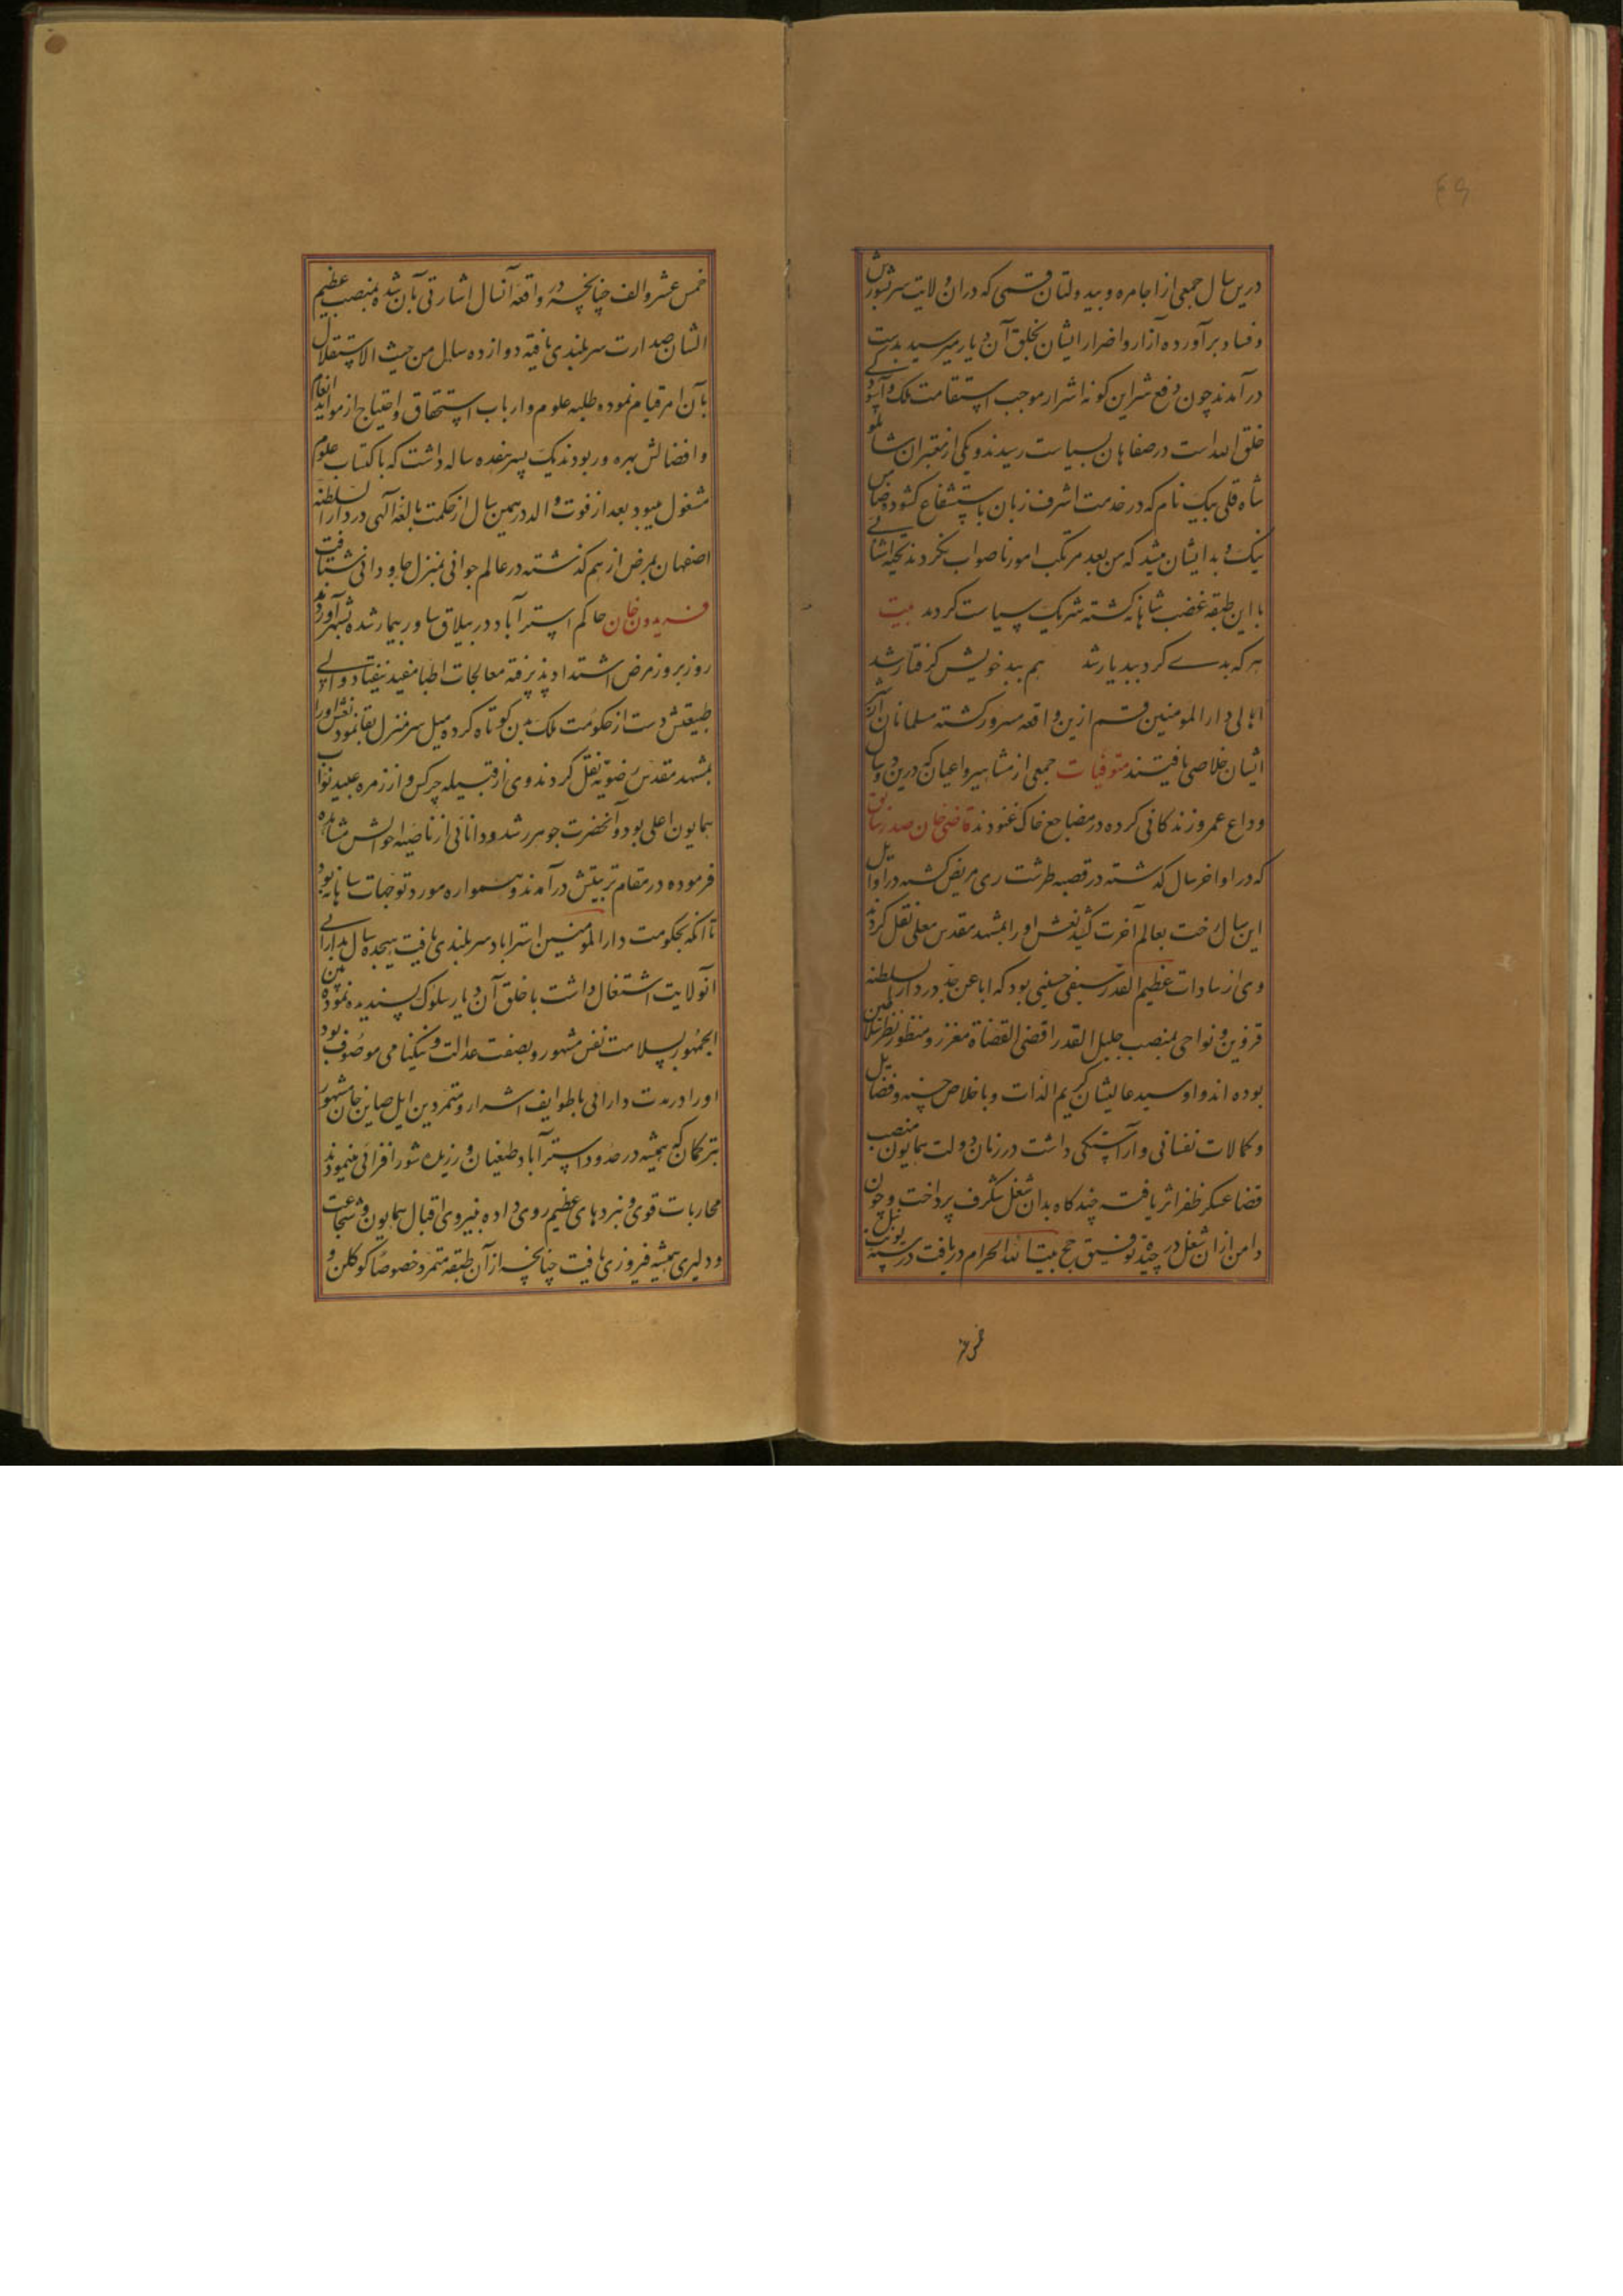 ٤٩
درین سال جمعی از اجامره و بیدولتان قمی که در ان ولایت سر بشورش
و فساد برآورده آزار و اضرار ایشان بخلق آن دیار میرسید بدست
درآمدند چون دفع شر این کونه اشرار موجب استقامت ملک و آسودکی
خلق الله است در صفاهان بسیاست رسیدند و یکی از معتبران شاملو
شاه قلی بیک نام که در خدمت اشرف زبان باستشفاع کشوده ضامن
نیک و بد ایشان میشد که من بعد مرتکب امور ناصواب نکردند
با این طبقه غضب شاهانه کشته شریک سیاست کردید بیت
هر که بدے کرد ببد یار شد هم ببد خویش کرفتار شد
اهالی دارالمؤمنین قم ازین واقعه مسرور کشته مسلمانان از شر
ایشان خلاصی یافتند متوفیات جمعی از مشاهیر و اعیان که درین دو سال
وداع عمر و زندکانی کرده در مضاجع خاک غنودند قاضی خان صدر سابق
که در اواخر سال کذشته در قصبه طرشت ری مریض کشته در اوایل
این سال رخت بعالم آخرت کشید نعش او را بمشهد مقدس معلی نقل کردند
وی از سادات عظیم القدر سیفی حسینی بود که ابا عن جد در دار السلطنه
قزوین و نواحی بمنصب جلیل القدر اقضی القضاة معزز و منظور نظر سلاطین
بوده اند و او سید عالیشان کریم الذات و باخلاص حسنه و فضایل
و کمالات نفسانی و آراستکی داشت در زمان دولت همایون منصب
قضا عسکر ظفر اثر یافته چند کاه بدان شغل شکرف پرداخت و چون
دامن از ان شغل در چیده توفیق حج بیت الله الحرام دریافت در سنه
خمس عشر
خمس عشر و الف چنانچه در واقعه آنسال اشارتی بآن شده بمنصب عظیم
الشان صدارت سربلندی یافته دوازده سال من حیث الاستقلال
بآن امر قیام نموده طلبه علوم و ارباب استحقاق و احتیاج از مواید انعام
و افضالش بهره ور بودند یک پسر هفده ساله داشت که باکتساب علوم
مشغول میبود بعد از فوت والد در همین سال از حکمت بالغه آلهی در دار السلطنه
اصفهان بمرض از هم کذشته در عالم جوانی بمنزل جاودانی شتافت
فریدون خان حاکم استرآباد در ییلاق ساور بیمار شده بشهر آوردند
روز بروز مرض اشتداد پذیرفته معالجات اطبا مفید نیفتاد والی
طبیعتش دست از حکومت ملک بدن کوتاه کرده میل سرمنزل بقا نمود نعش او را
بمشهد مقدس رضویه نقل کردند وی از قبیله چرکس و از زمره عبید نواب
همایون اعلی بود و آنحضرت جوهر رشد و دانائی از ناصیه احوالش مشاهده
فرموده در مقام تربیتش درآمدند و همواره مورد توجهات شاهانه بود
تا آنکه بحکومت دار المؤمنین استراباد سربلندی یافت هیجده سال بدارائی
آنولایت اشتغال داشت با خلق آن دیار سلوک پسندیده نموده بین
الجمهور بسلامت نفس مشهور و بصفت عدالت و نیکنامی موصوف بود
او را در مدت دارائی با طوایف اشرار و متمردین ایل صاین خانی مشهور
بترکمان که همیشه در حدود استرآباد طغیان ورزیده شور افزائی مینمودند
محاربات قوی و نبردهای عظیم روی داده بنیروی اقبال همایون و شجاعت
و دلیری همیشه فیروزی یافت چنانچه از آن طبقه متمرد خصوصا کوکلن و